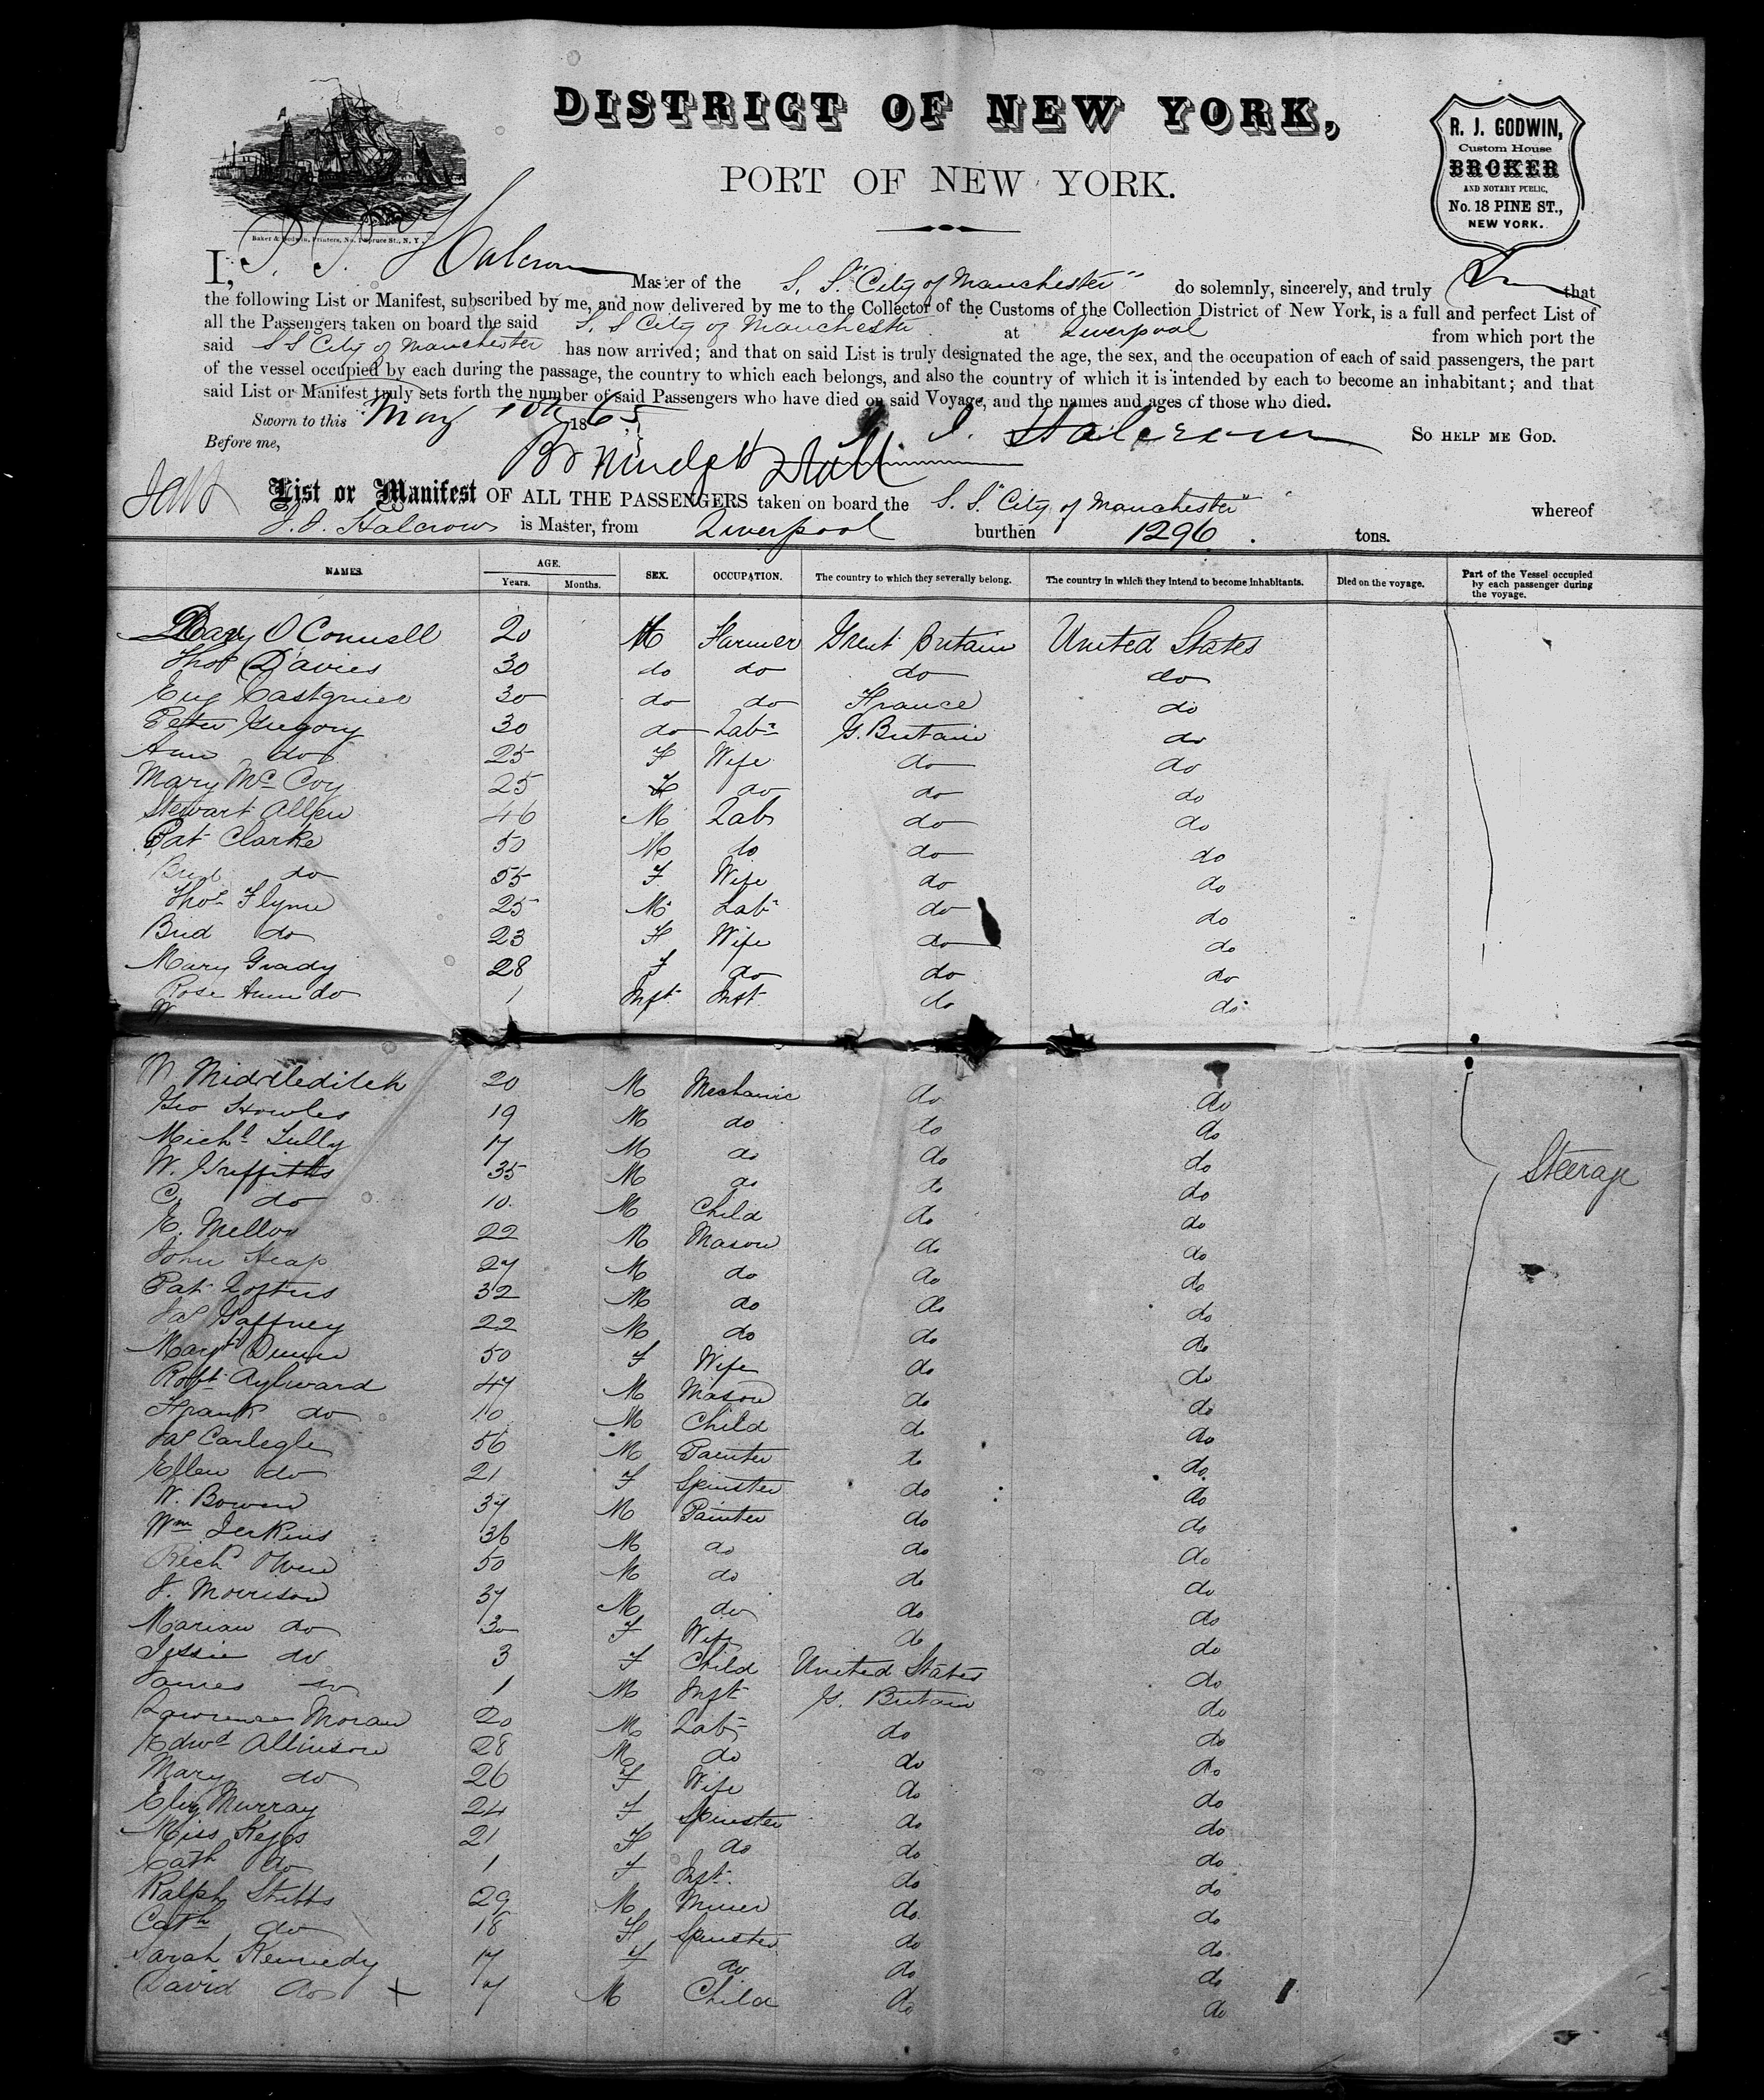 DISTRICT OF NEW YORK,
PORT OF NEW YORK.
R. J. GODWIN,
Custom House
BROKER
AND NOTARY PUBLIC,
No. 18 PINE ST.,
NEW YORK.
Baker & Godwin, Printers, No. 1 Spruce St., N. Y.
I, Halcrow Master of the S. S. "City of Manchester" do solemnly, sincerely, and truly that
the following List or Manifest, subscribed by me, and now delivered by me to the Collector of the Customs of the Collection District of New York, is a full and perfect List of
all the Passengers taken on board the said S. S City of Manchester at Liverpool from which port the
said S S City of Manchester has now arrived; and that on said List is truly designated the age, the sex, and the occupation of each of said passengers, the part
of the vessel occupied by each during the passage, the country to which each belongs, and also the country of which it is intended by each to become an inhabitant; and that
said List or Manifest truly sets forth the number of said Passengers who have died on said Voyage, and the names and ages of those who died.
Sworn to this May 10th 1865 Halcrow SO HELP ME GOD.
Before me,
List or Manifest OF ALL THE PASSENGERS taken on board the S. S. "City of Manchester" whereof
Halcrow is Master, from Liverpool burthen 1296 tons.
NAMES. AGE. Years. Months. SEX. OCCUPATION. The country to which they severally belong. The country in which they intend to become inhabitants. Died on the voyage. Part of the Vessel occupied by each passenger during the voyage.
O'Connell 20 M Farmer Great Britain United States
Thos Davies 30 do do do do
Eug 30 do do France do
Peter Gregory 30 do Labr G. Britain do
Ann do 25 F Wife do do
Mary McCoy 25 F do do do
Stewart Allen 46 M Lab do do
Pat Clarke 50 M do do do
Brid do 55 F Wife do do
Thos Flynn 25 M Labr do do
Brid do 23 F Wife do do
Mary Grady 28 F do do do
Rose Ann do 1 Inft Inft do do
W
W Middleditch 20 M Mechanic do do
Geo Howles 19 M do do do
Michl Lully 17 M do do do
W. Griffiths 35 M do do do
C. do 10 M Child do do
E. Mellor 22 M Mason do do
John Heap 27 M do do do
Pat Loftus 32 M do do do
Jas Gaffney 22 M do do do
Margt Dunn 50 F Wife do do
Robt Aylward 47 M Mason do do
Frank do 10 M Child do do
Jas Carlegle 56 M Painter do do
Ellen do 21 F Spinster do do
W. Bowen 37 M Painter do do
Wm Jerkins 36 M do do do
Richd Owen 50 M do do do
J. Morrison 37 M do do do
Marian do 30 F Wife do do
Jessie do 3 F Child United States do
James do 1 M Inft G. Britain do
Lawrence Moran 20 M Labr do do
Edwd Allinson 28 M do do do
Mary do 26 F Wife do do
Eliz Murray 24 F Spinster do do
Miss Keggs 21 F do do do
Cath do 1 F Inft do do
Ralph Stibbs 29 M Miner do do
Cath do 18 F Spinster do do
Sarah Kennedy 17 F do do do
David do + 7 M Child do do
Steerage